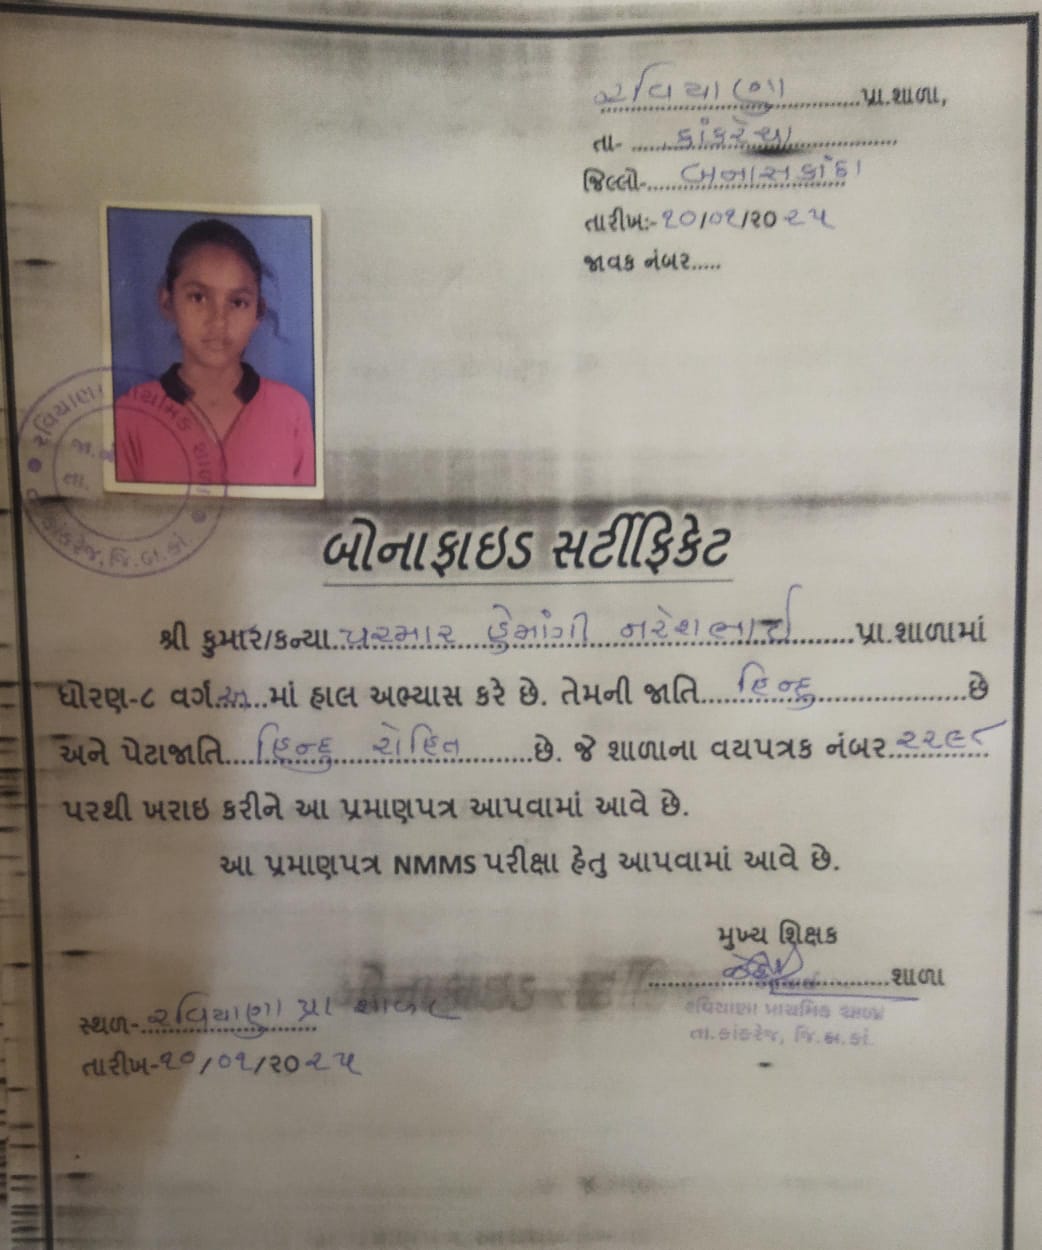 રવિયાણા પ્રા.શાળા,
તા- કાંકરેજ
જિલ્લો- બનાસકાંઠા
તારીખ:- ૧૦/૦૧/૨૦ ૨૫
જાવક નંબર.....
રવિયાણા પ્રાથમિક શાળા
જા.નં.
તા.
કાંકરેજ, જિ.બ.કાં.
બોનાફાઇડ સર્ટીફિકેટ
શ્રી કુમાર/કન્યા..પરમાર હેમાંગી નરેશભાઈ........પ્રા.શાળામાં
ધોરણ-૮ વર્ગ..અ...માં હાલ અભ્યાસ કરે છે. તેમની જાતિ....હિન્દુ....................છે
અને પેટાજાતિ....હિન્દુ રોહિત..........છે. જે શાળાના વયપત્રક નંબર..૨૨૯૮
પરથી ખરાઇ કરીને આ પ્રમાણપત્ર આપવામાં આવે છે.
આ પ્રમાણપત્ર NMMS પરીક્ષા હેતુ આપવામાં આવે છે.
મુખ્ય શિક્ષક
..............................શાળા
રવિયાણા પ્રાથમિક શાળા
તા.કાંકરેજ, જિ.બ.કાં.
સ્થળ-..રવિયાણા પ્રા શાળા
તારીખ-૧૦/૦૧/૨૦૨૫